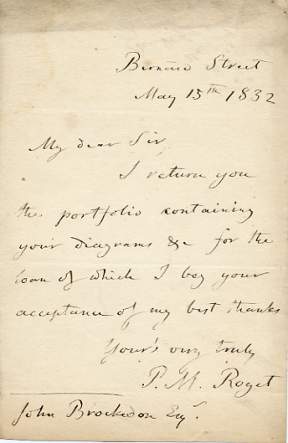 Bernard Street
May 15th 1832
My dear Sir,
I return you
the portfolio containing
your diagrams &c for the
loan of which I beg your
acceptance of my best thanks
Your's very truly
P. M. Roget
John Brockedon Esqr.